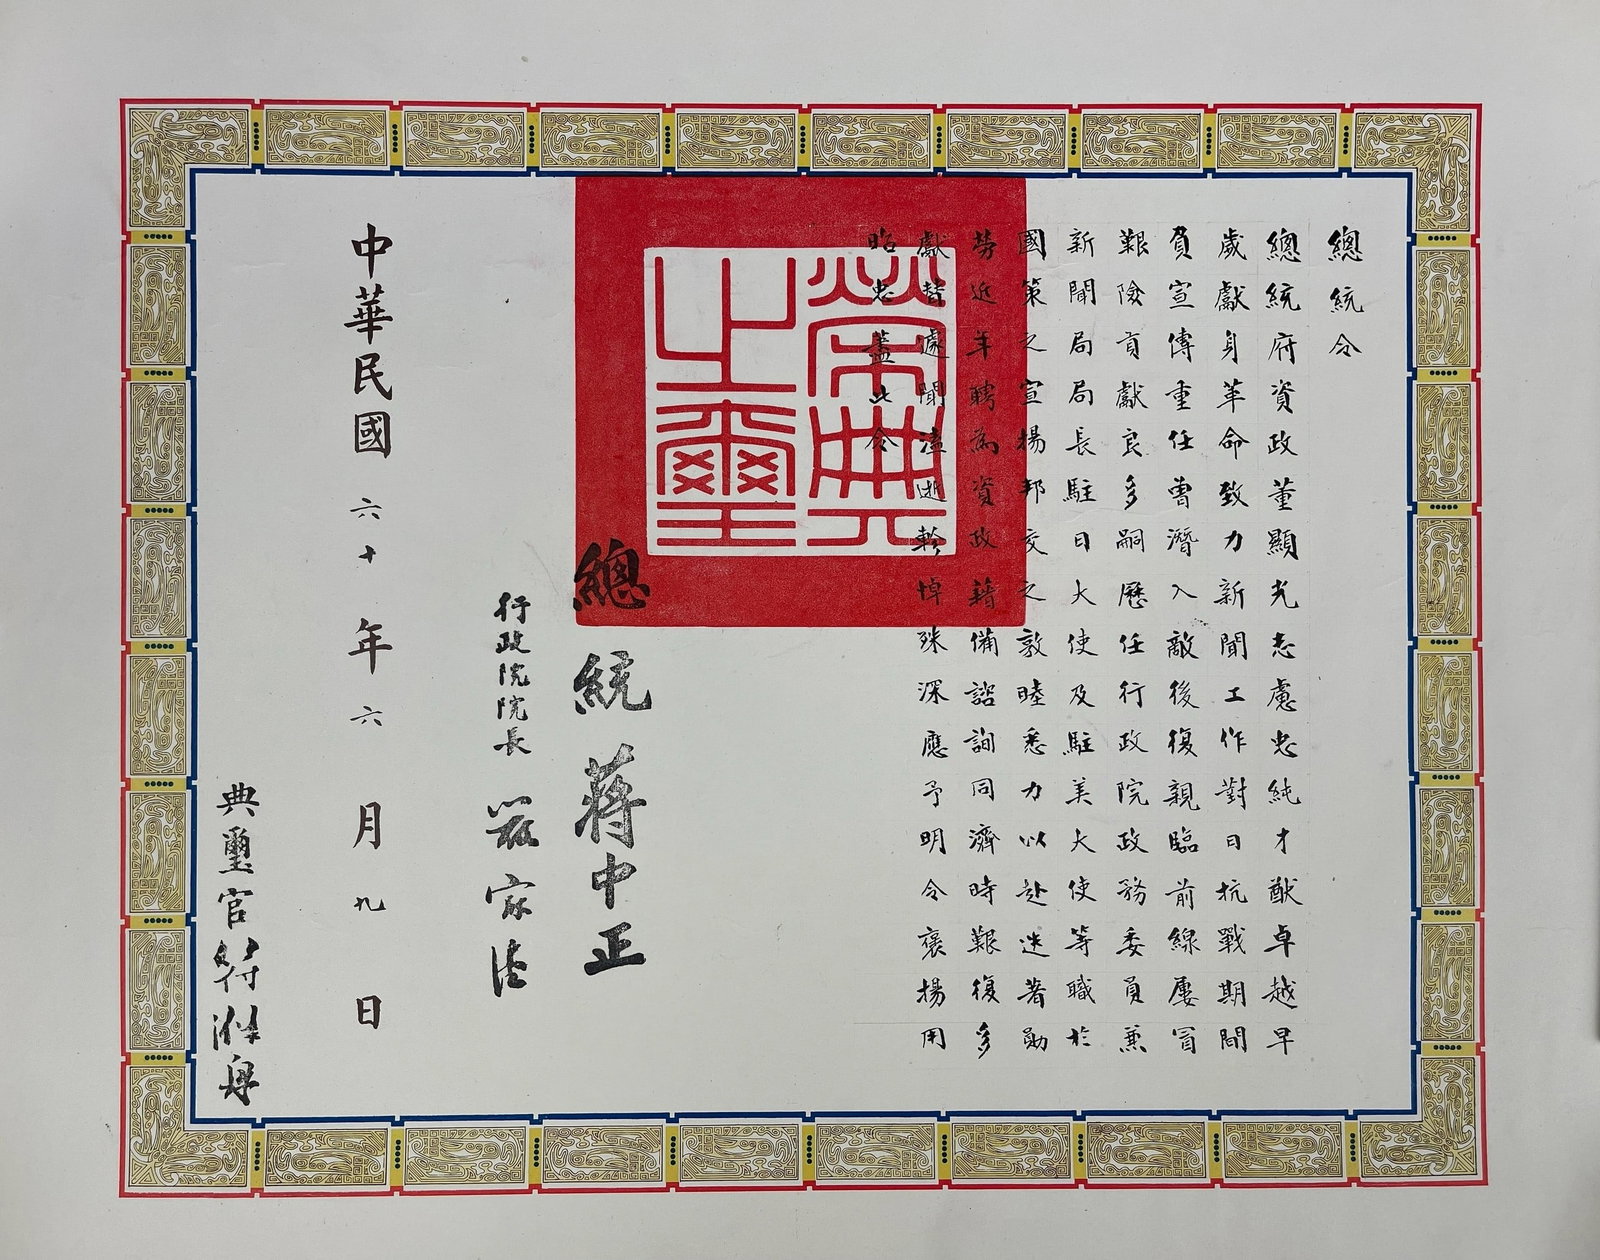 總統令
總統府資政董顯光志慮忠純才猷卓越早
歲獻身革命致力新聞工作對日抗戰期間
負宣傳重任曾潛入敵後復親臨前線屢冒
艱險貢獻良多嗣歷任行政院政務委員兼
新聞局局長駐日大使及駐美大使等職於
國策之宣揚邦交之敦睦悉力以赴迭著勛
勞近年聘為資政藉備諮詢同濟時艱復多
獻替遽聞溘逝軫悼殊深應予明令褒揚用
昭忠藎此令
榮典之璽
總統 蔣中正
行政院院長 嚴家淦
中華民國六十年六月九日
典璽官符滌舟